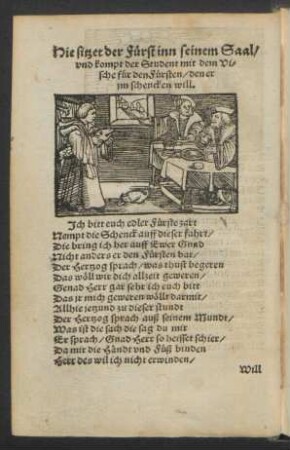 Hie sitzet der Fürst inn seinem Saal/
vnd kompt der Student mit dem Vi-
sche für den Fürsten/ den er
jm schencken will.
Ich bitt euch edler Fürste zart
Nempt die Schenck auff dieser fahrt/
Die bring ich her auff Ewer Gnad
Nicht anders er den Fürsten bat/
Der Hertzog sprach/ was thust begeren
Das wöll wir dich allzeit geweren/
Genad Herr gar sehr ich euch bitt
Das jr mich geweren wöllt darmit/
Allhie jetzund zu dieser stundt
Der Hertzog sprach auß seinem Mundt/
Was ist die sach die sag du mir
Er sprach/ Gnad Herr so heisset schier/
Da mir die Händt vnd Füß binden
Herr des wil ich nicht erwinden/
Will